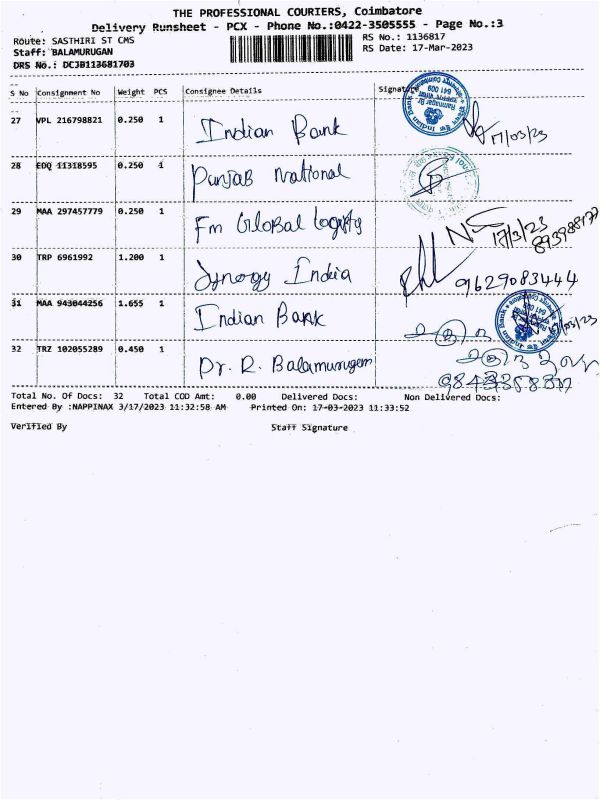 THE PROFESSIONAL COURIERS, Coimbatore
Delivery Runsheet - PCX - Phone No.:0422-3505555 - Page No.:3
Route: SASTHIRI ST CMS RS No.: 1136817
Staff: BALAMURUGAN RS Date: 17-Mar-2023
DRS No.: DCJB113681703
S No Consignment No Weight PCS Consignee Details Signature
27 VPL 216798821 0.250 1 Indian Bank 17/03/23
28 EDQ 11318595 0.250 1 Punjab National
29 MAA 297457779 0.250 1 Fm Global 17/3/23
30 TRP 6961992 1.200 1 Synergy India 9629083444
31 MAA 943044256 1.655 1 Indian Bank 17/03/23
32 TRZ 102055289 0.450 1 Dr. R. Balamurugan
Total No. Of Docs: 32 Total COD Amt: 0.00 Delivered Docs: Non Delivered Docs:
Entered By :NAPPINAX 3/17/2023 11:32:58 AM Printed On: 17-03-2023 11:33:52
Verified By Staff Signature